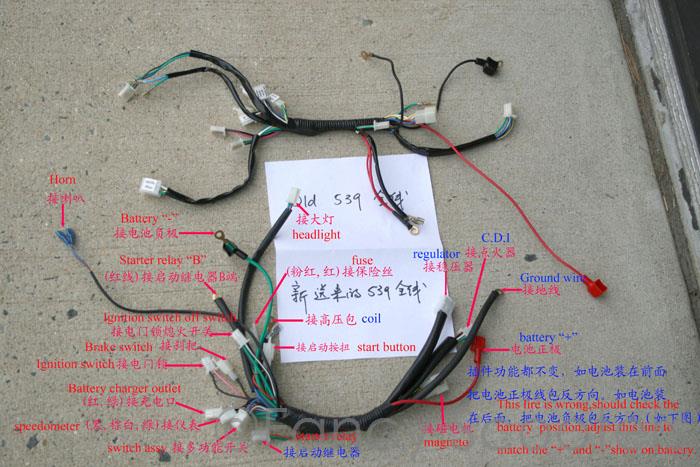 Old 539 全线
Horn
接喇叭
Battery "-"
接电池负极
接大灯
headlight
Starter relay "B"
(红线)接启动继电器B端
fuse
(粉红,红)接保险丝
regulator
接稳压器
C.D.I
接点火器
Ground wire
接地线
新送来的539全线
Ignition switch off switch
接电门锁熄火开关
接高压包 coil
Brake switch 接刹把
接启动按扭 start button
Ignition switch接电门锁
battery "+"
电池正极
Battery charger outlet
(红,绿)接充电口
speedometer (黑,棕白,绿)接仪表
switch assy 接多功能开关
接启动继电器
接磁电机
magneto
插件功能都不变,如电池装在前面
把电池正极线包反方向。如电池装
在后面,把电池负极包反方向(如下图)
This fire is wrong,should check the
battery position,adjust this line to
match the "+" and "-"show on battery